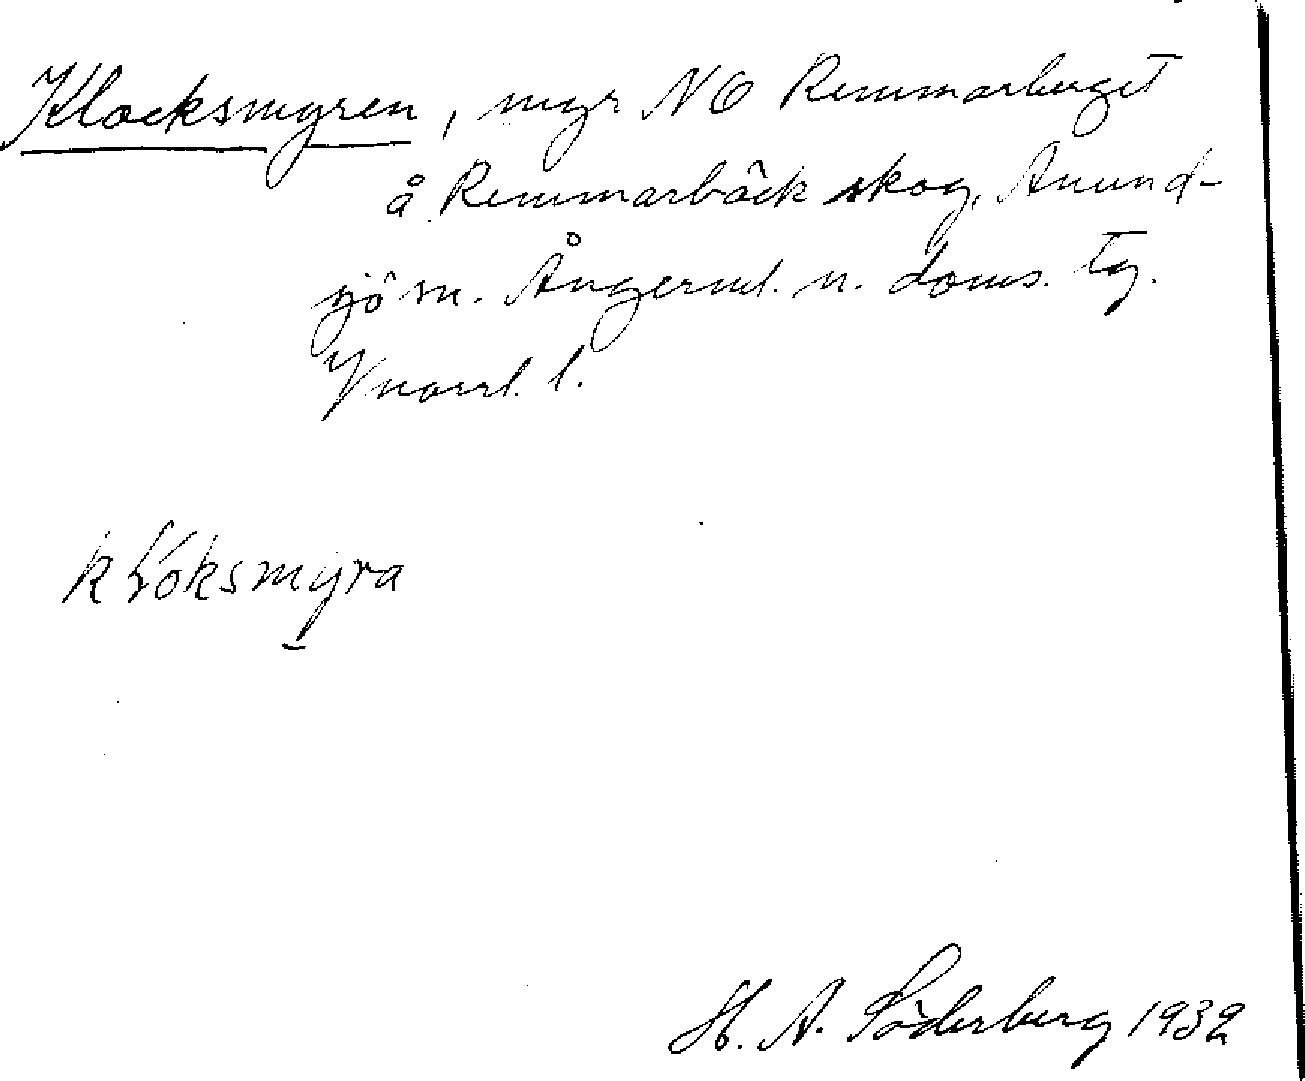 Klocksmyren, myr NO Remmarberget
å Remmarbäck skog, Anund-
sjö sn. Ångerml. n. doms. tg.
Vnorrl. l.
kłóksmyra
H. A. Söderberg 1932